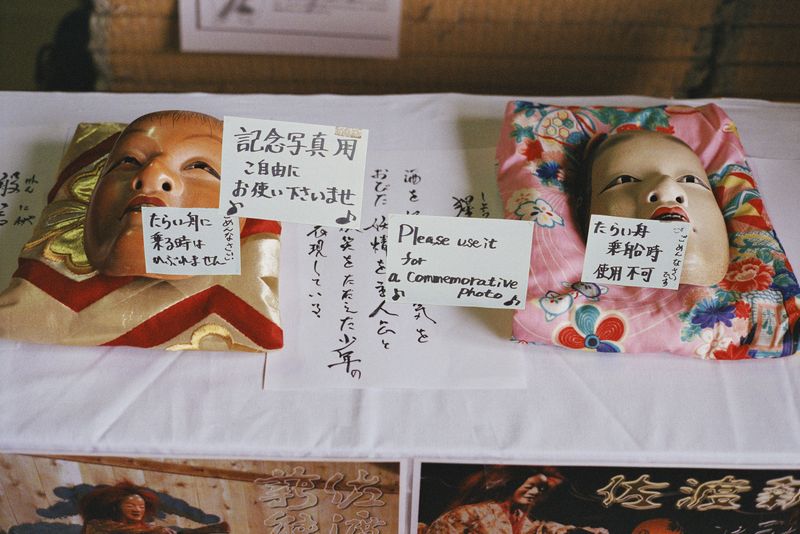 記念写真用
ご自由に
お使い下さいませ♪
たらい舟に
乗る時は
かぶれません
ごめんなさい
Please use it
for
a Commemorative
♪ Photo ♪
たらい舟
乗船時
使用不可
ごめんなさい
酒を
気を
おびた
主人公と
たたえた少年の
表現している
佐渡
薪
佐渡薪